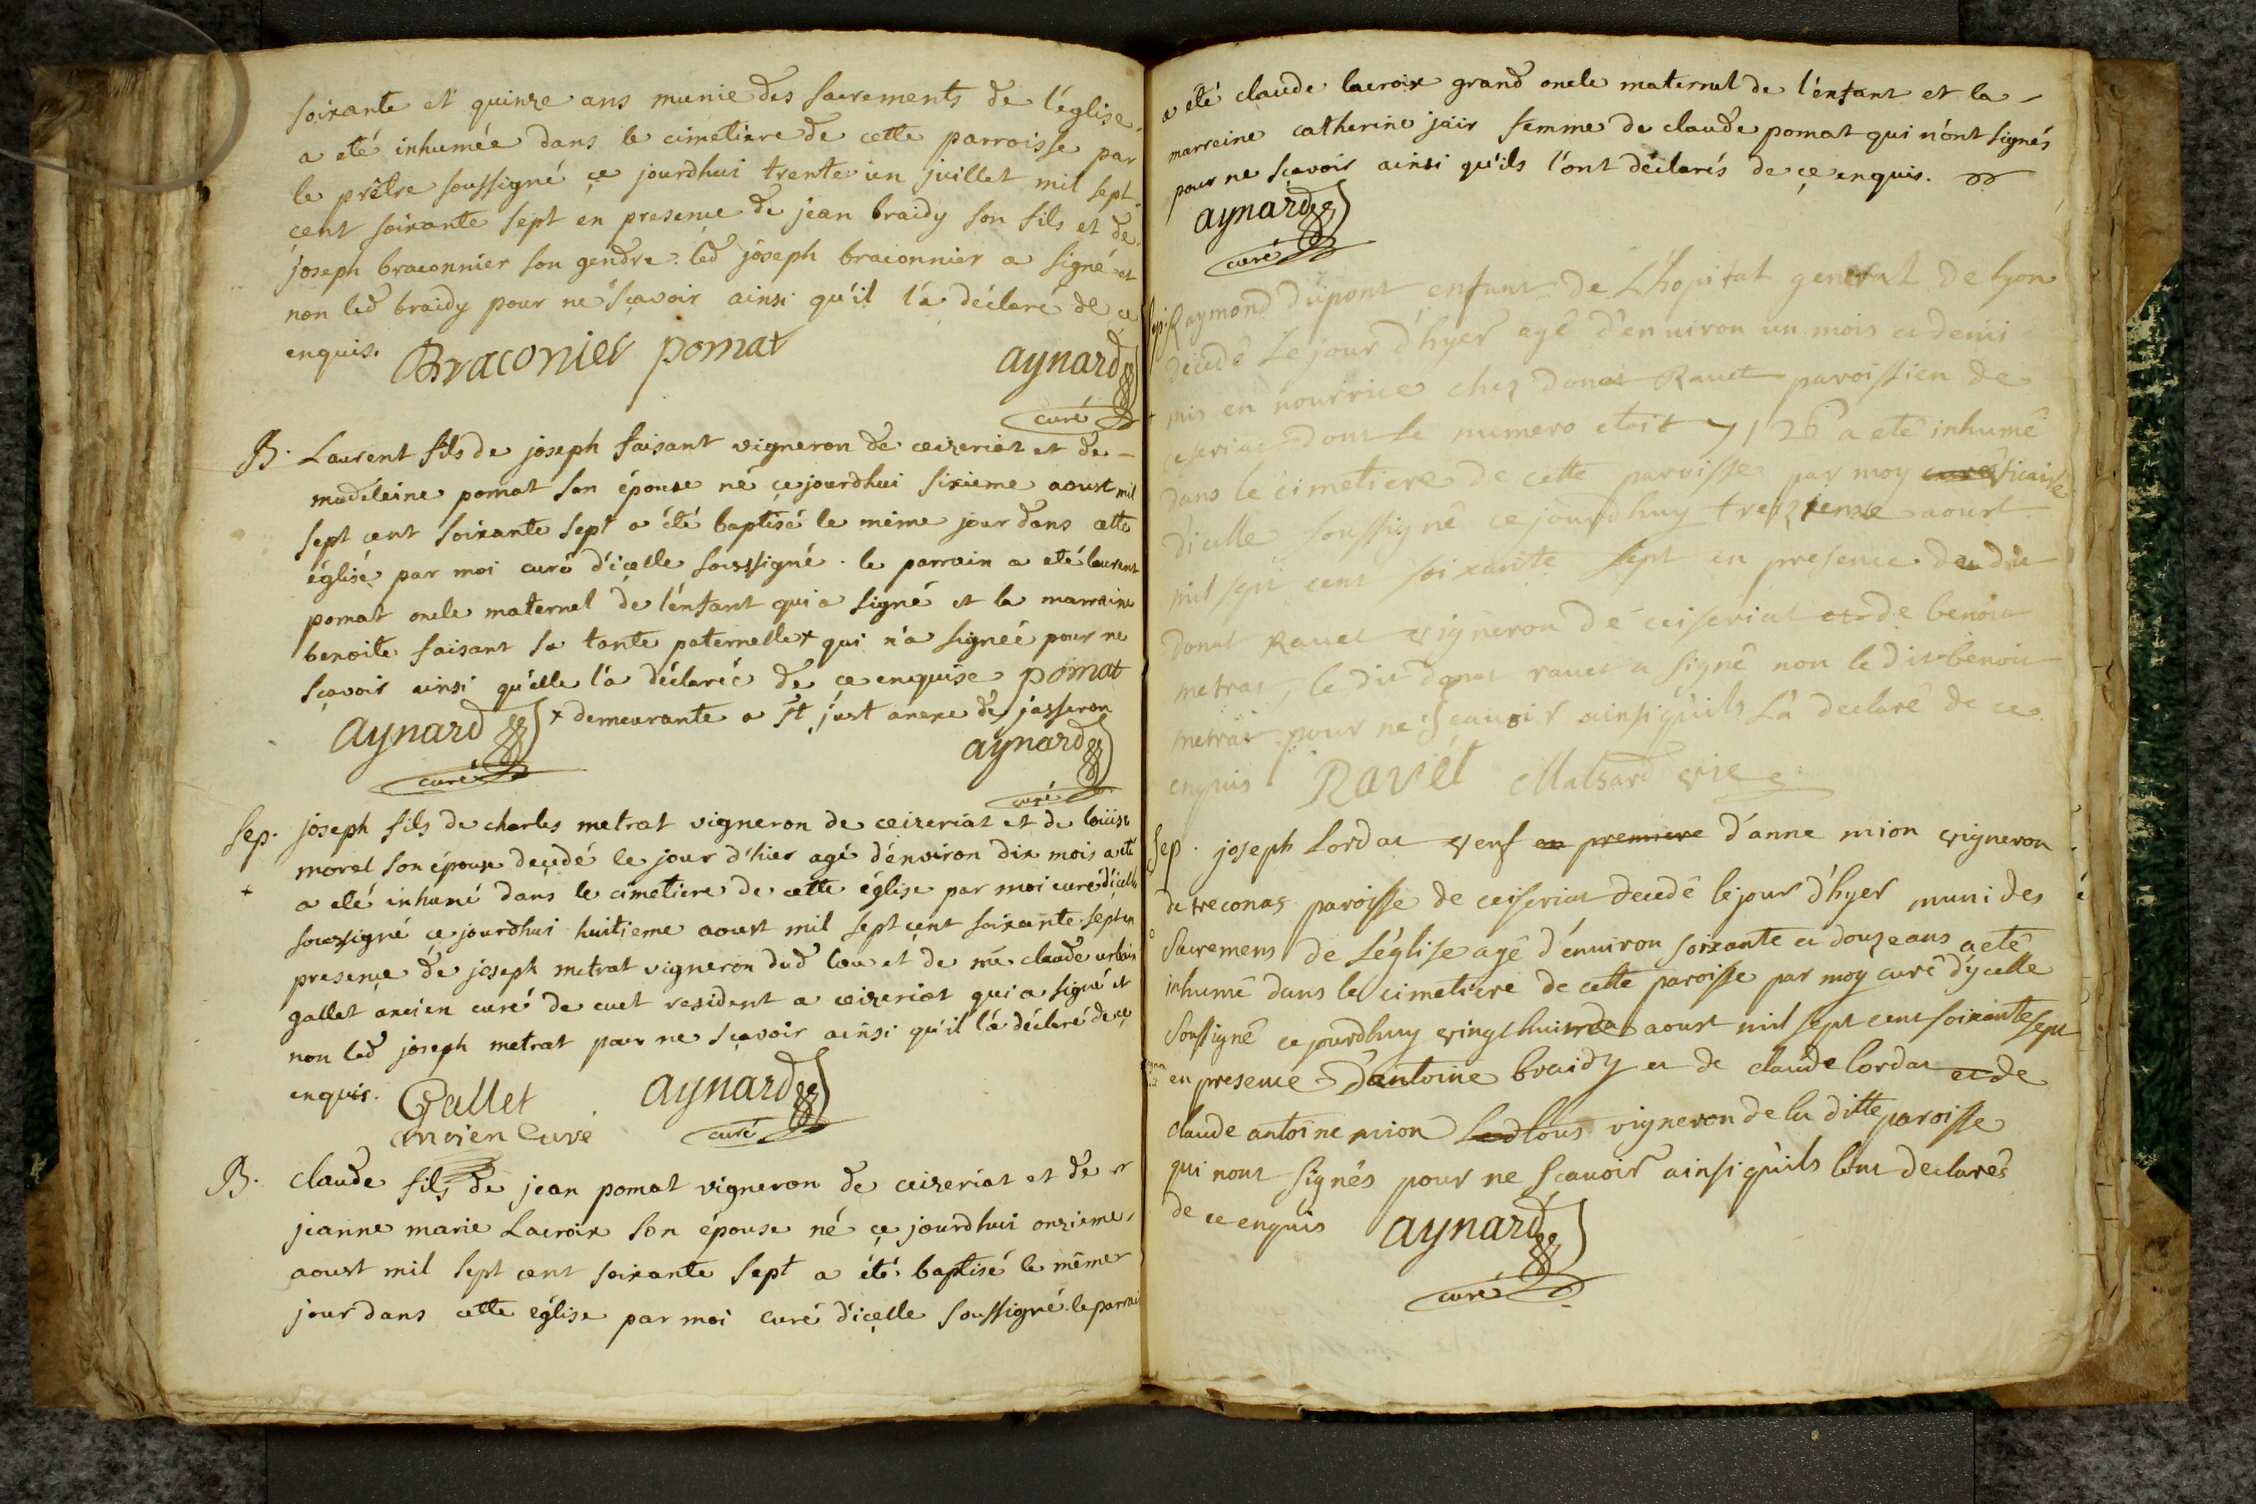 soixante et quinze ans munie des sacrements de l'église.
a eté inhumée dans le cimetiere de cette parroisse par
le prêtre soussigné ce jourdhui trente un juillet mil sept
cent soixante sept en presence de jean braidy son fils et de
joseph braconnier son gendre. led joseph braconnier a signé et
non led braidy pour ne sçavoir ainsi qu'il l'a déclaré de ce
enquis. Braconier pomat aynard
curé
B. Laurent fils de joseph faisant vigneron de ceizeriat et de
madeleine pomat son épouse né ce jourdhui sixieme aoust mil
sept cent soixante sept a été baptisé le même jour dans cette
église par moi curé d'icelle soussigné. le parrain a eté laurent
pomat oncle maternel de l'enfant qui a signé et la marraine
benoite faisant sa tante paternelle + qui n'a signéé pour ne
sçavoir ainsi qu'elle l'a déclaréé de ce enquise pomat
aynard + demeurante a st just anexe de jasseron
curé aynard
curé
Sep. joseph fils de charles metrat vigneron de ceizeriat et de louise
morel son épouse decedé le jour d'hier agé d'environ dix mois a eté
+ a eté inhumé dans le cimetiere de cette église par moi curé d'icelle
soussigné ce jourdhui huitieme aoust mil sept cent soixante sept en
presence de joseph metrat vigneron dud lieu et de mre claude urbain
gallet ancien curé de cuet resident a ceizeriat qui a signé et
non led joseph metrat pour ne sçavoir ainsi qu'il l'a déclaré de ce
enquis. Gallet aynard
ancien Curé curé
B. claude fils de jean pomat vigneron de ceizeriat et de
jeanne marie Lacroix son épouse né ce jourdhui onzieme
aoust mil sept cent soixante sept a été baptisé le même
jour dans cette église par moi curé d'icelle soussigné. le parrai
a été claude lacroix grand oncle maternel de l'enfant et la
marraine catherine jair femme de claude pomat qui n'ont signés
pour ne sçavoir ainsi qu'ils l'ont déclarés de ce enquis.
aynard
curé
Sep. Raymond dupont enfant de L'hopital general de lyon
décedé le jour d'hyer agé d'environ un mois et demi
+ mis en nourrice chez donat Ravet paroissien de
ceseriat dont le numero etoit 7126 a eté inhumé
dans le cimetiere de cette paroisse par moy curé vicaire
dicelle soussigné ce jourdhuy treizieme aoust
mil sept cent soixante sept en presence du dit
donat Ravet vigneron de ceiseriat et de benoit
metrat, le dit donat ravet a signé non le dit benoit
metrat pour ne sçauoir ainsi qu'ils L'a declaré de ce
enquis Ravét Malsard vic
Sep. joseph Lordat veuf en premiere d'anne mion vigneron
de treconas paroisse de ceiseriat decedé le jour d'hyer muni des
Sacremens de L'église agé d'énuiron soixante et douze ans a eté
inhumé dans le cimetiere de cette paroisse par moy curé d'ycelle
soussigné ce jourdhuy vingt huit aoust mil sept cent soixante sept
en presence d'antoine braidy et de claude lordat et de
claude antoine mion tous vigneron de la ditte paroisse
qui nont signés pour ne scauoir ainsi qu'ils l'ont declarés
de ce enquis aynard
curé